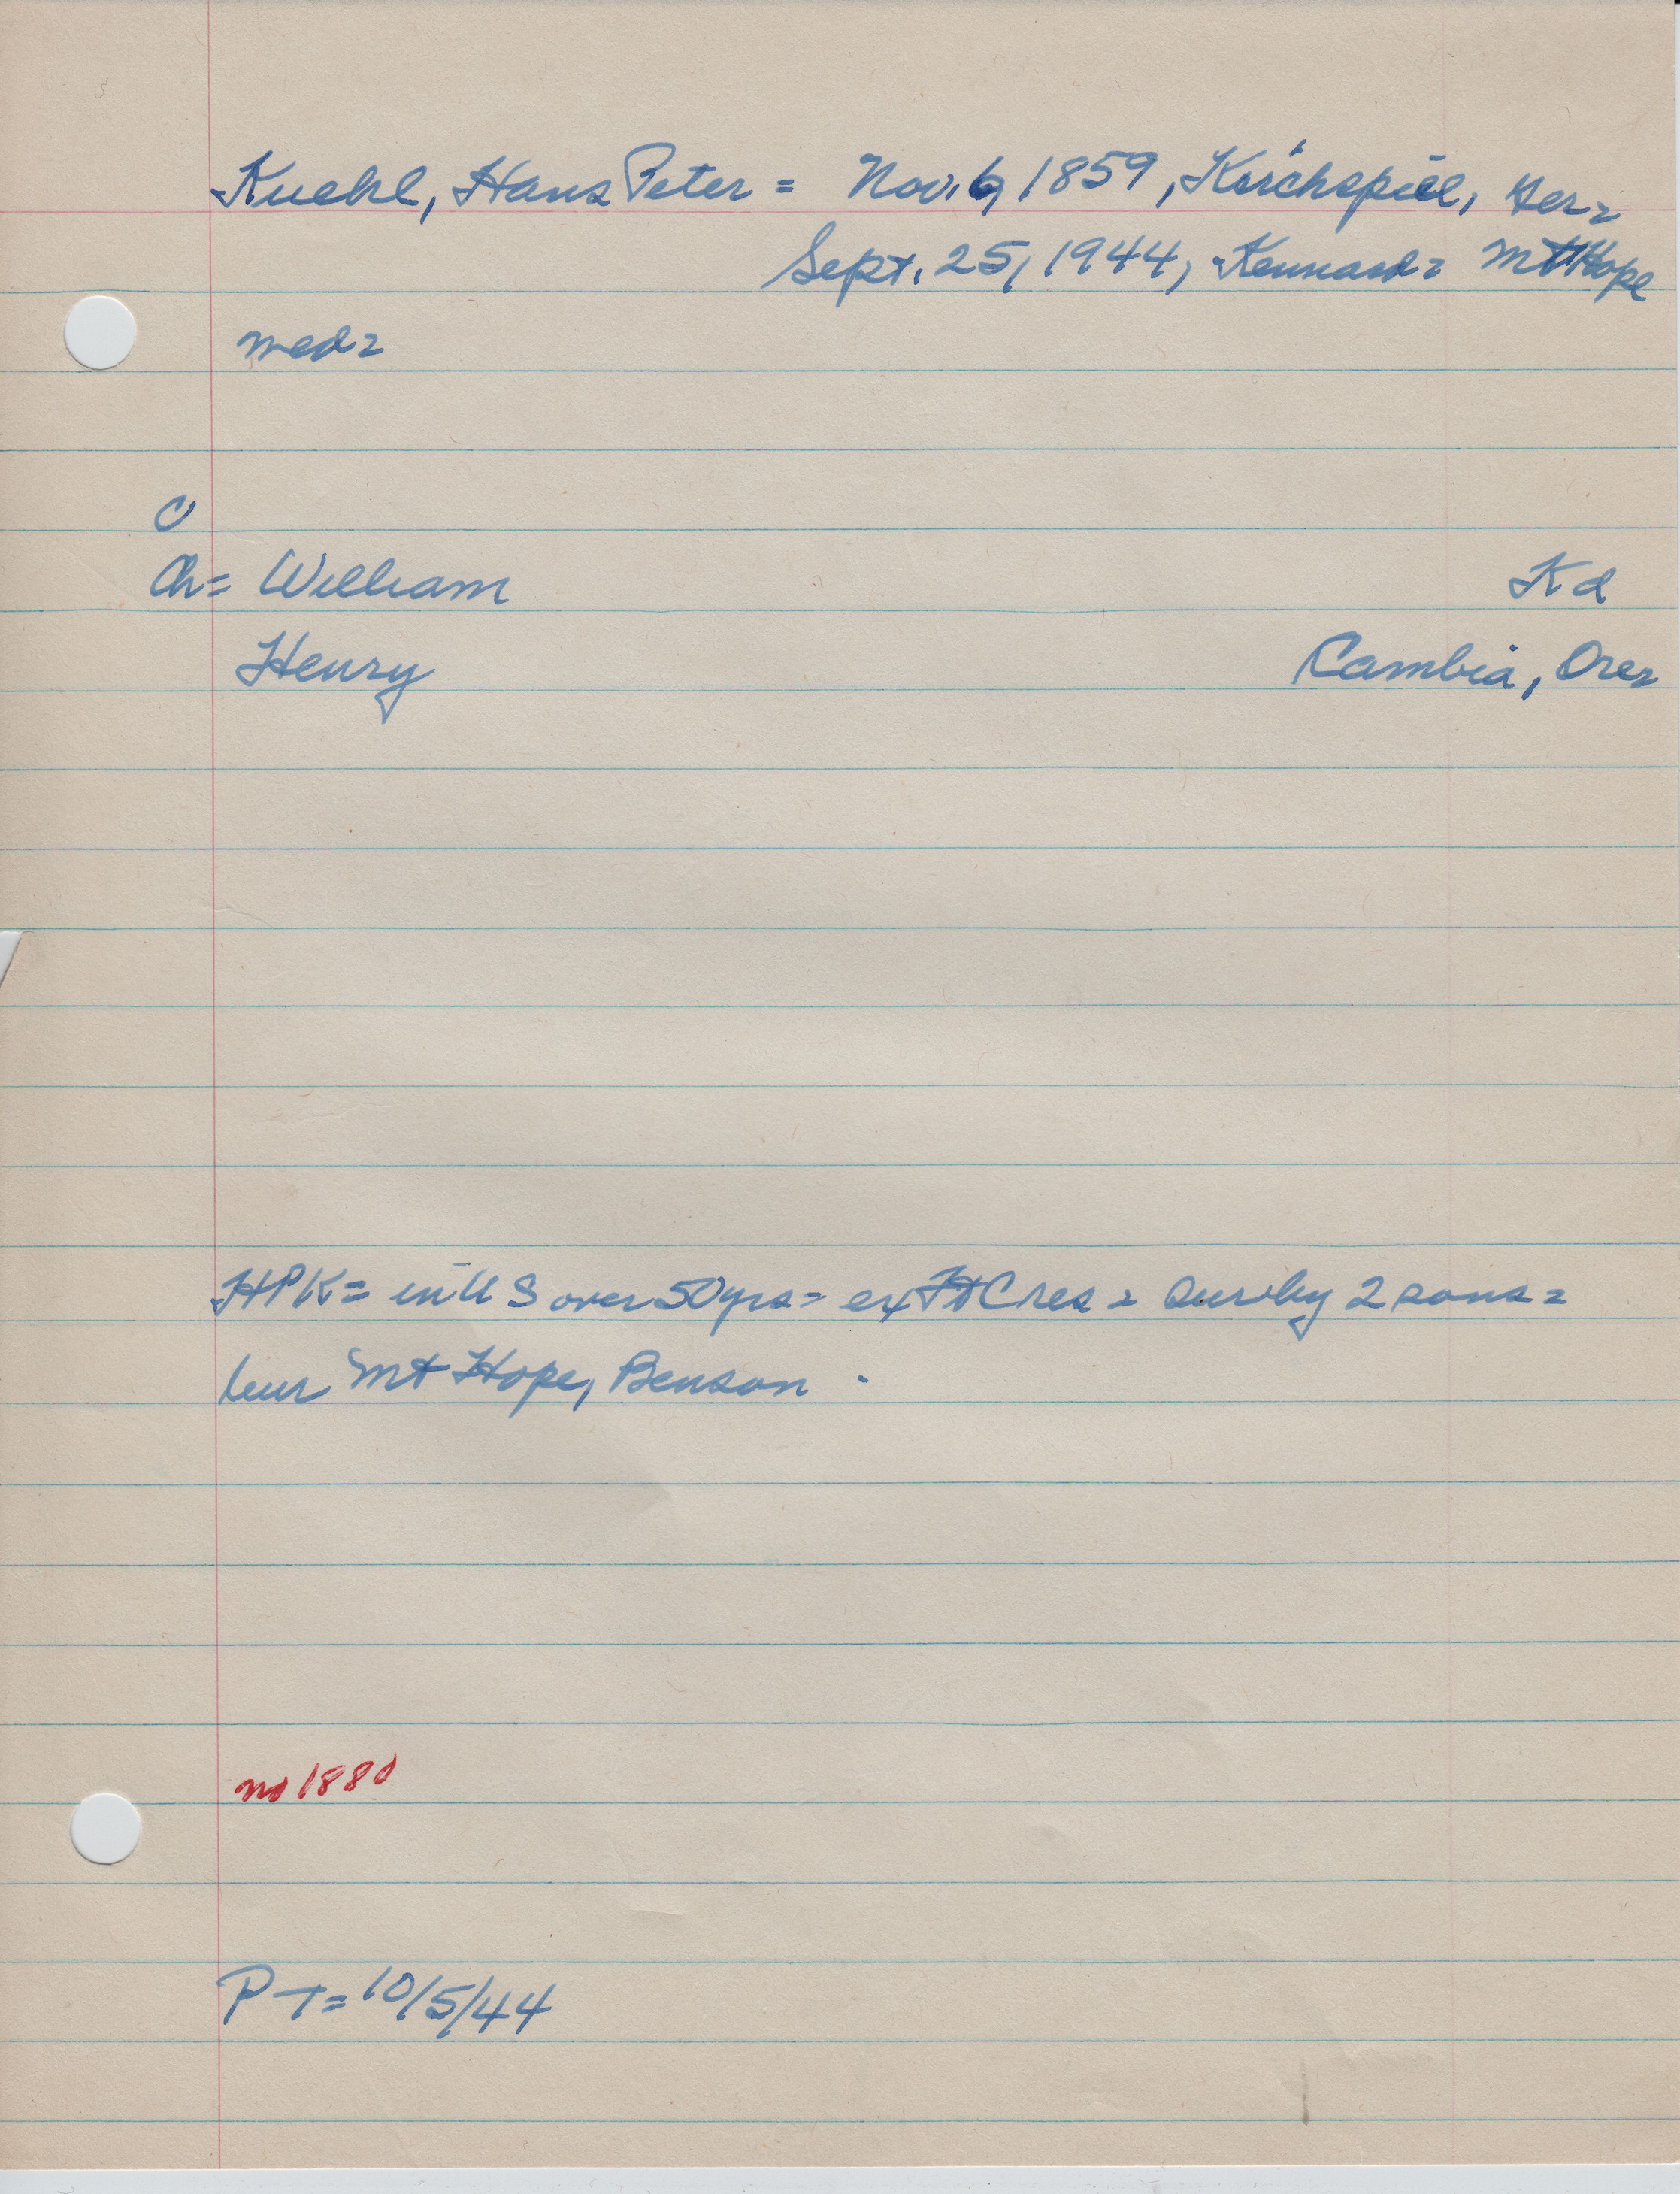 Kuehl, Hans Peter = Nov. 6, 1859, Kirchspiel, Ger =
Sept. 25, 1944, Kennard = Mt Hope
med =
C
Ch = William Kd
Henry Cambia, Ore =
HPK = in U S over 50 yrs = ex Ft C res = surv by 2 sons =
bur Mt Hope, Benson .
no 1880
P T = 10/5/44